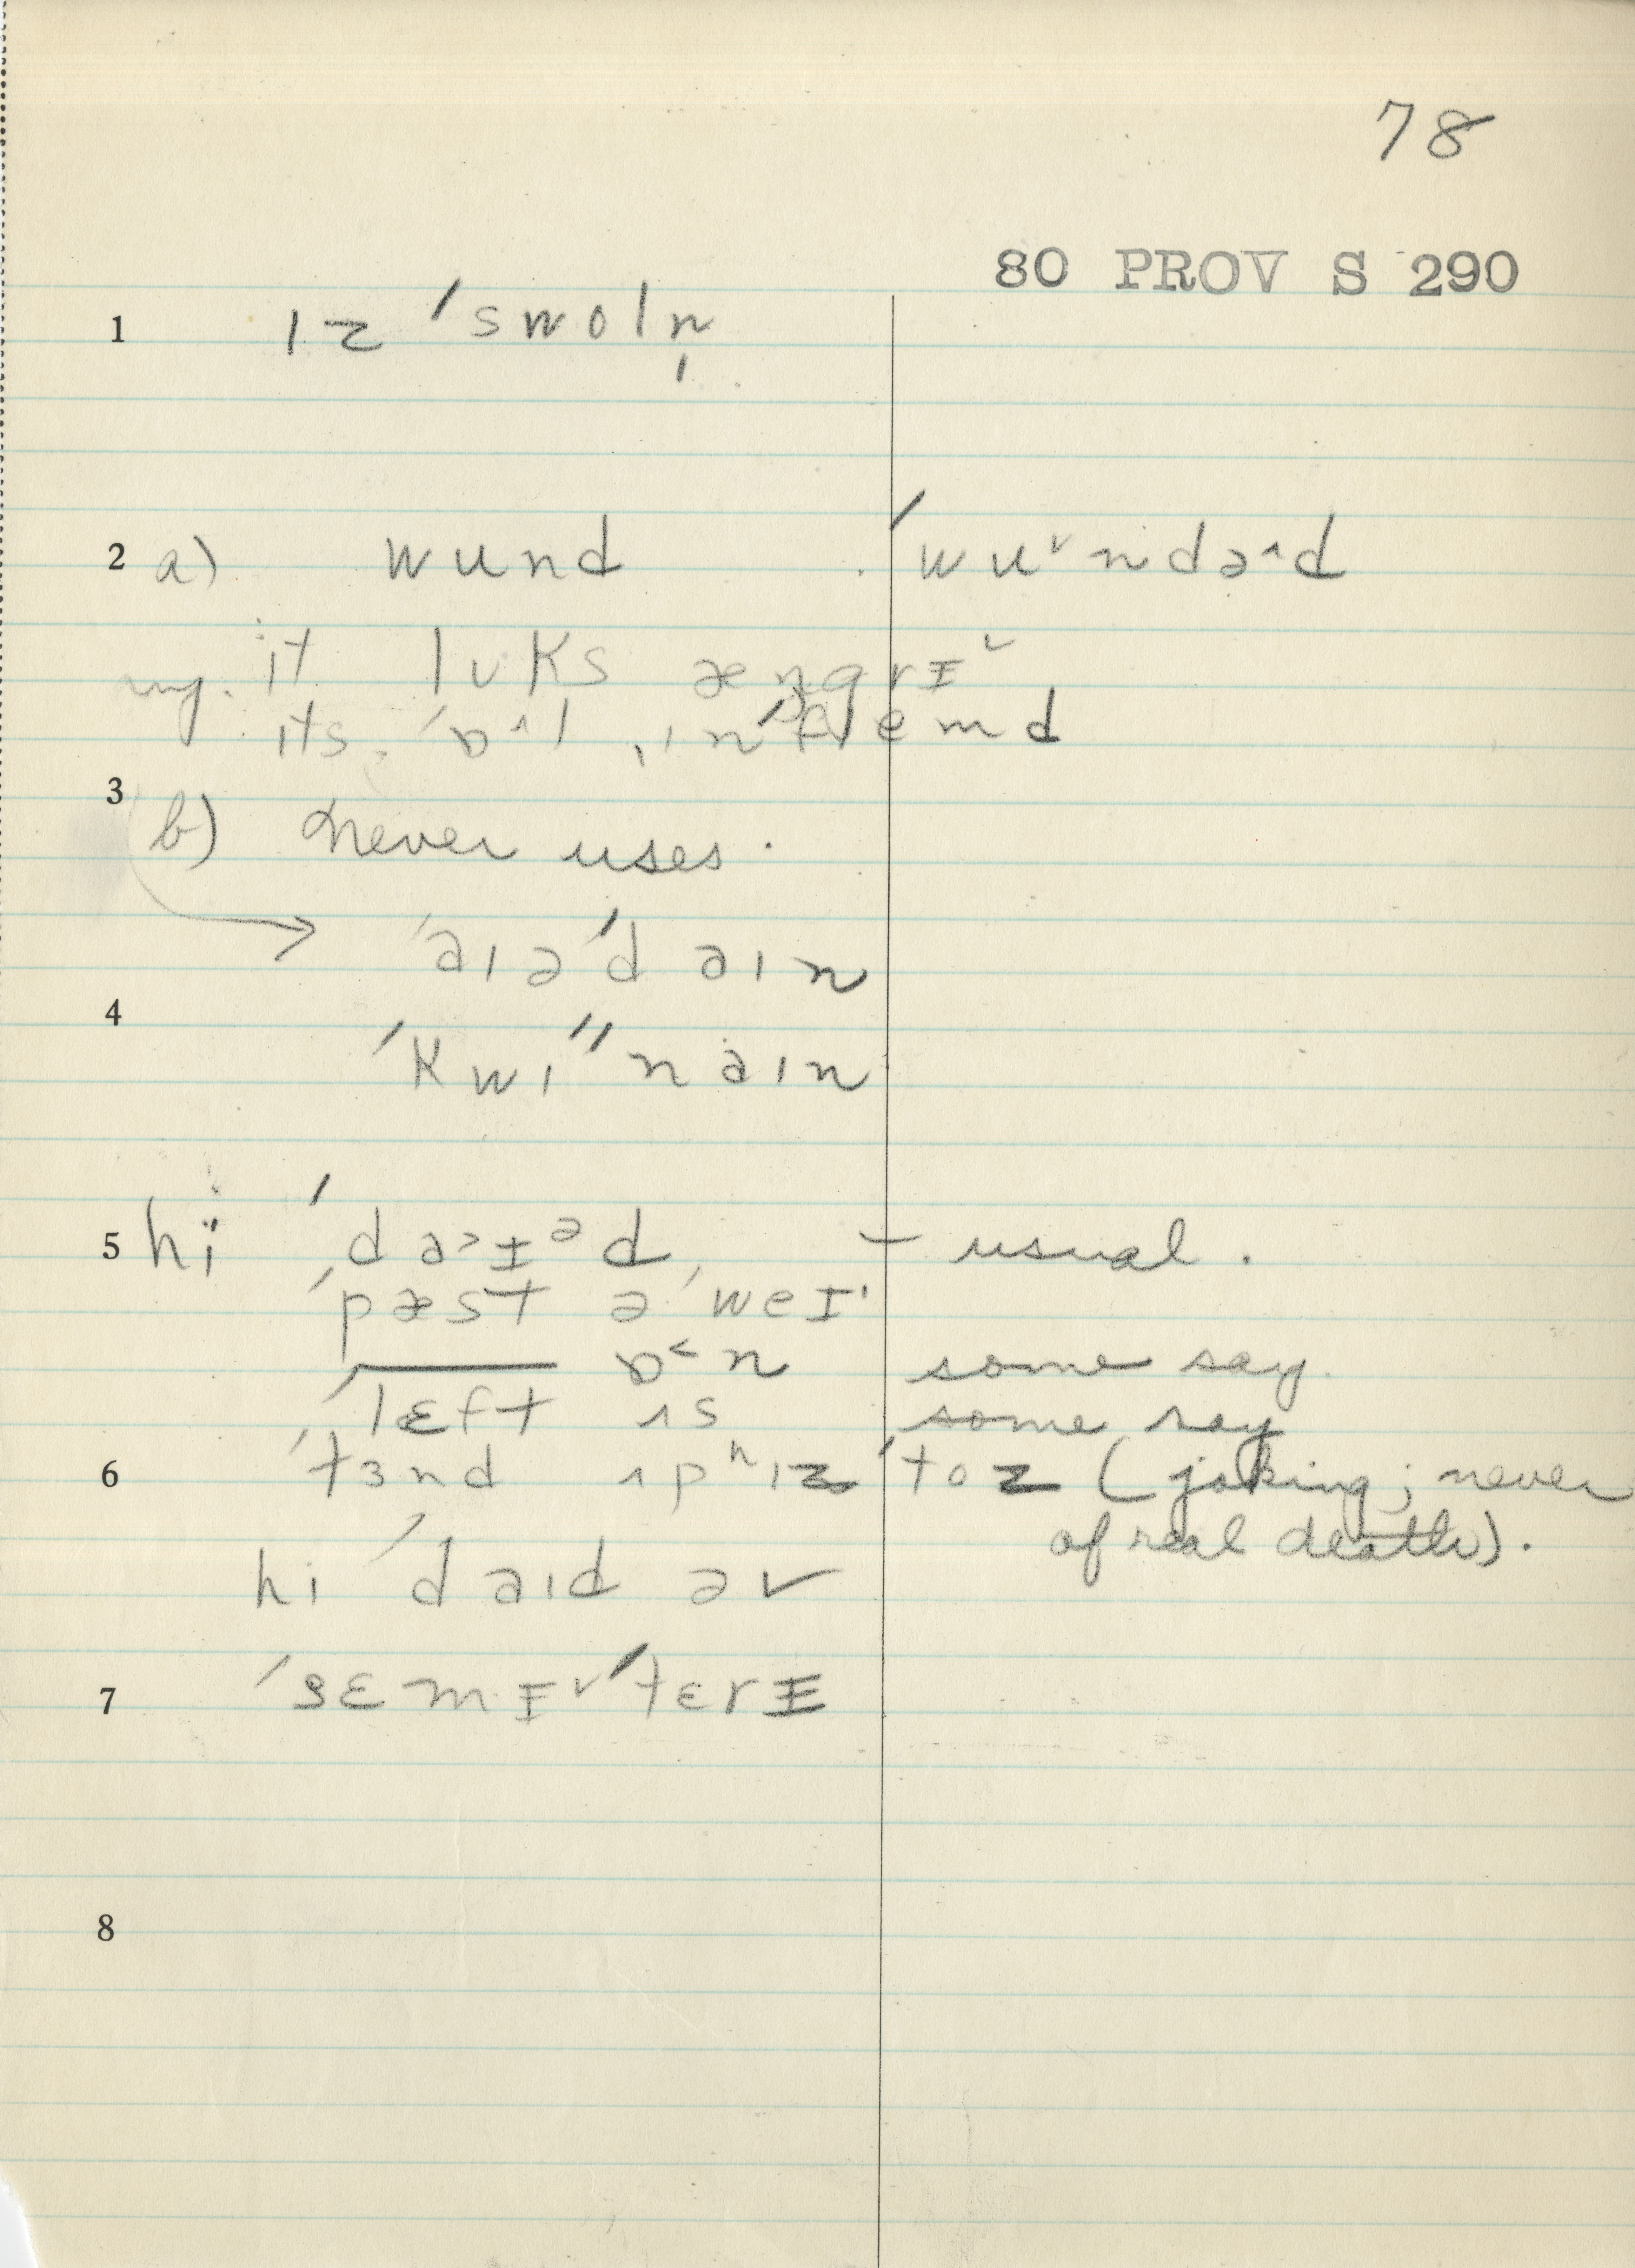 78
80 PROV S 290
1 ɪz ˈswoln̩
2 a) wund ˈwu˅ndə^d
it lʊks æŋgrɪ˅
its ˈɒ^l ˌɪnˈflemd
3
b) never uses.
→ ˈaɪəˈdaɪn
4
ˈkwɪˈˈnaɪn
5 hi ˈda˃ɪᵊd, – usual.
ˈpæst əˈweɪ
—— ɒ˂n some say.
ˈlɛft ʌs some say
6 ˈtɜnd ʌpʰɪz ˈtoz (joking; never
of real death).
hi ˈdaɪd əv
7 ˈsɛmɪ˅ˈtɛrɪ
8